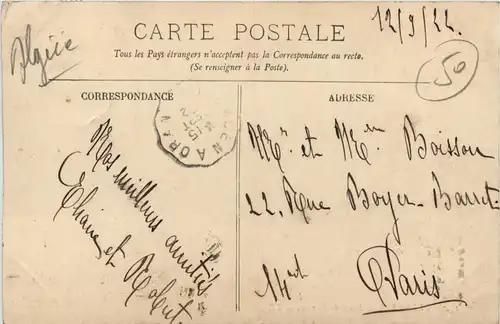 Algérie
12/9/22.
CARTE POSTALE
50
Tous les Pays étrangers n'acceptent pas la Correspondance au recto.
(Se renseigner à la Poste.)
CORRESPONDANCE
Nos meilleurs amitiés
Eliane et Robert
ADRESSE
Mr et Mme Boisson
22. Rue Boyer-Barret
14me
Paris
A ORAN